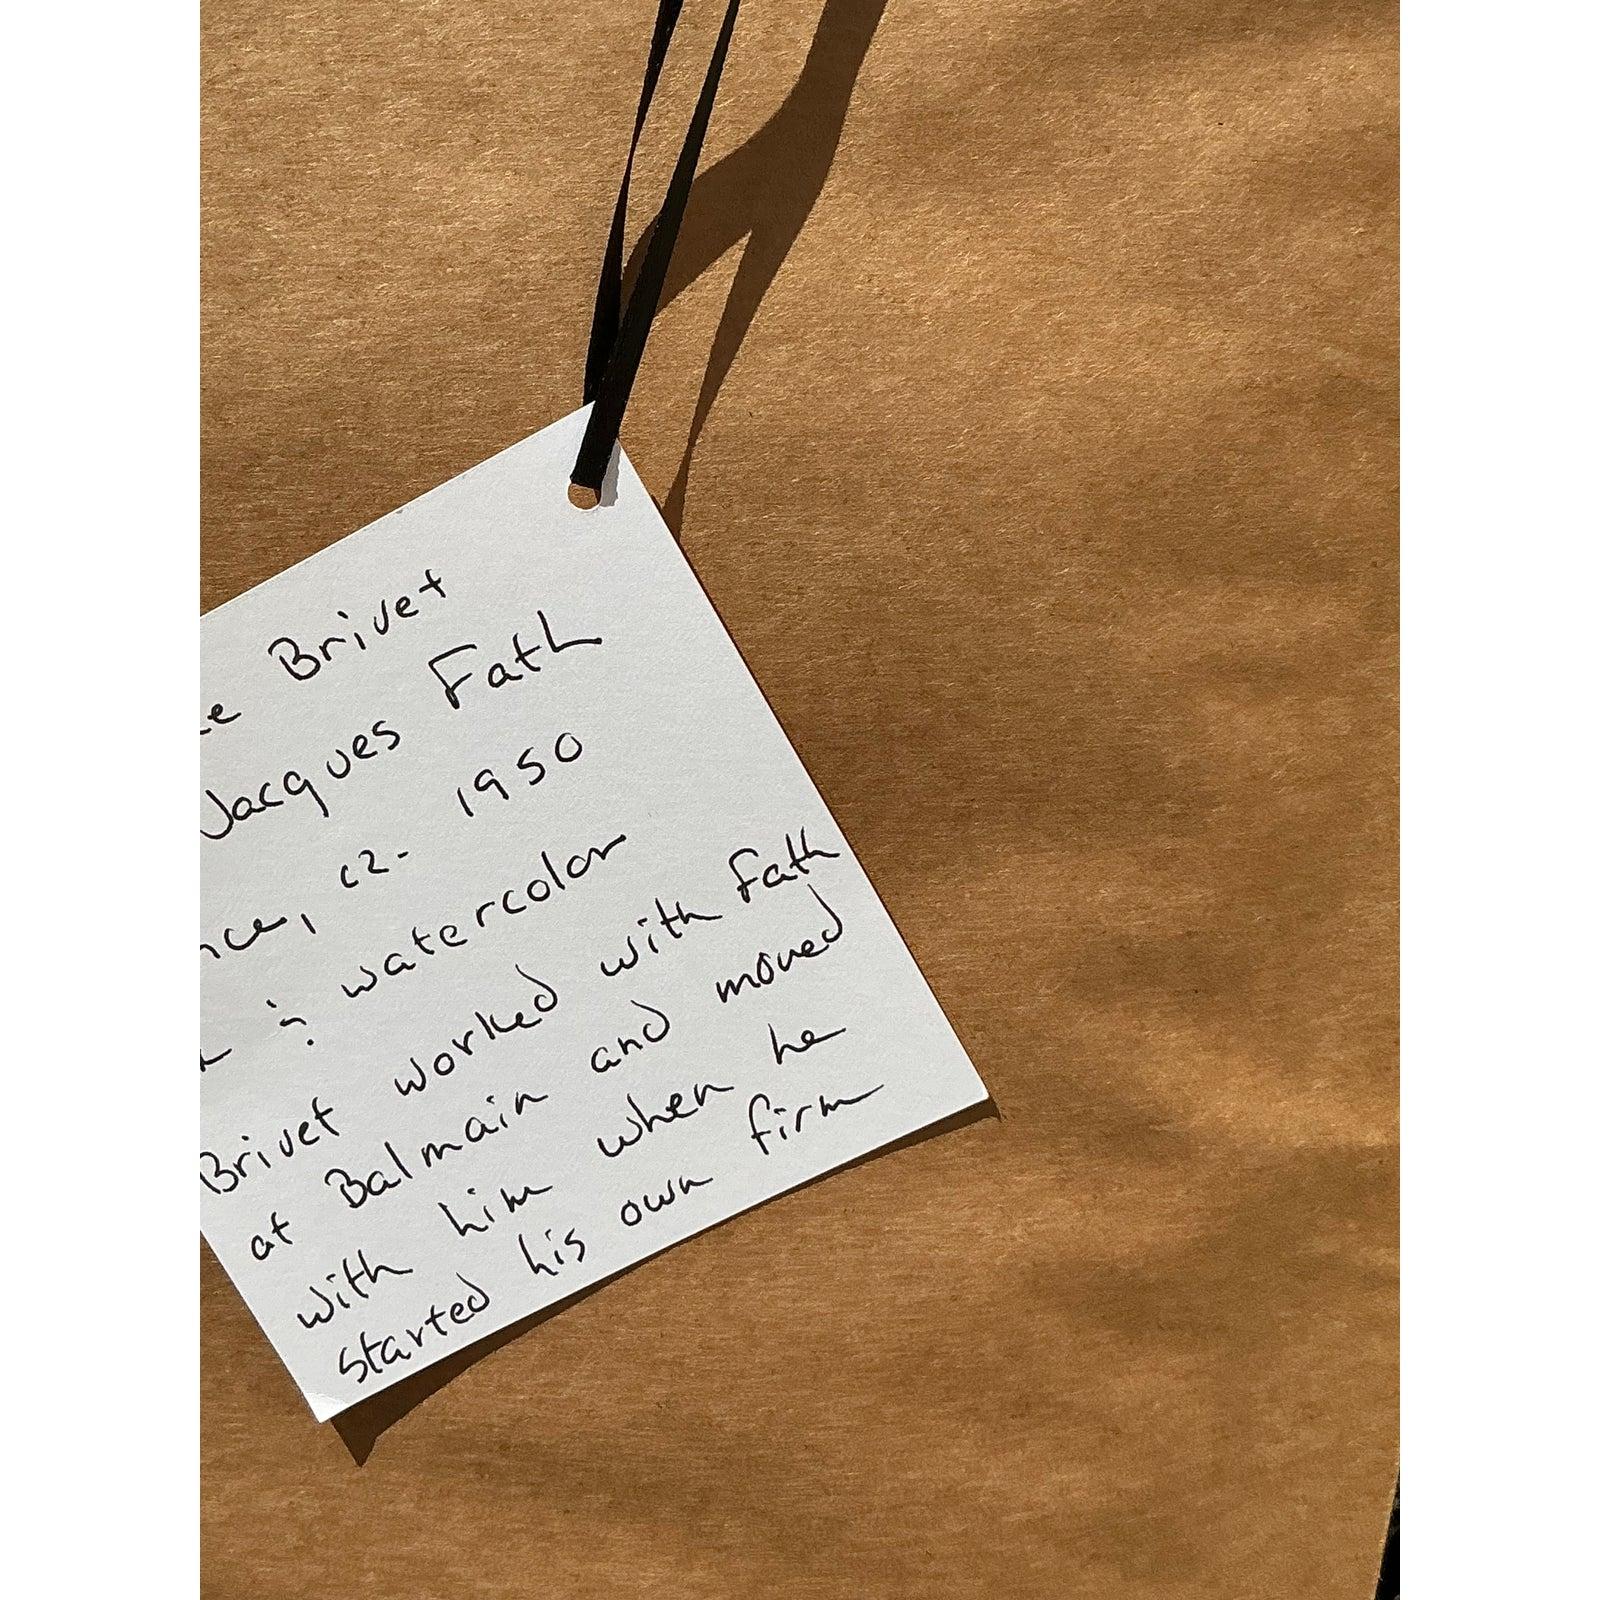 Brivet
Jacques Fath
c2. 1950
watercolor
Brivet worked with Fath
at Balmain and moved
with him when he
started his own firm